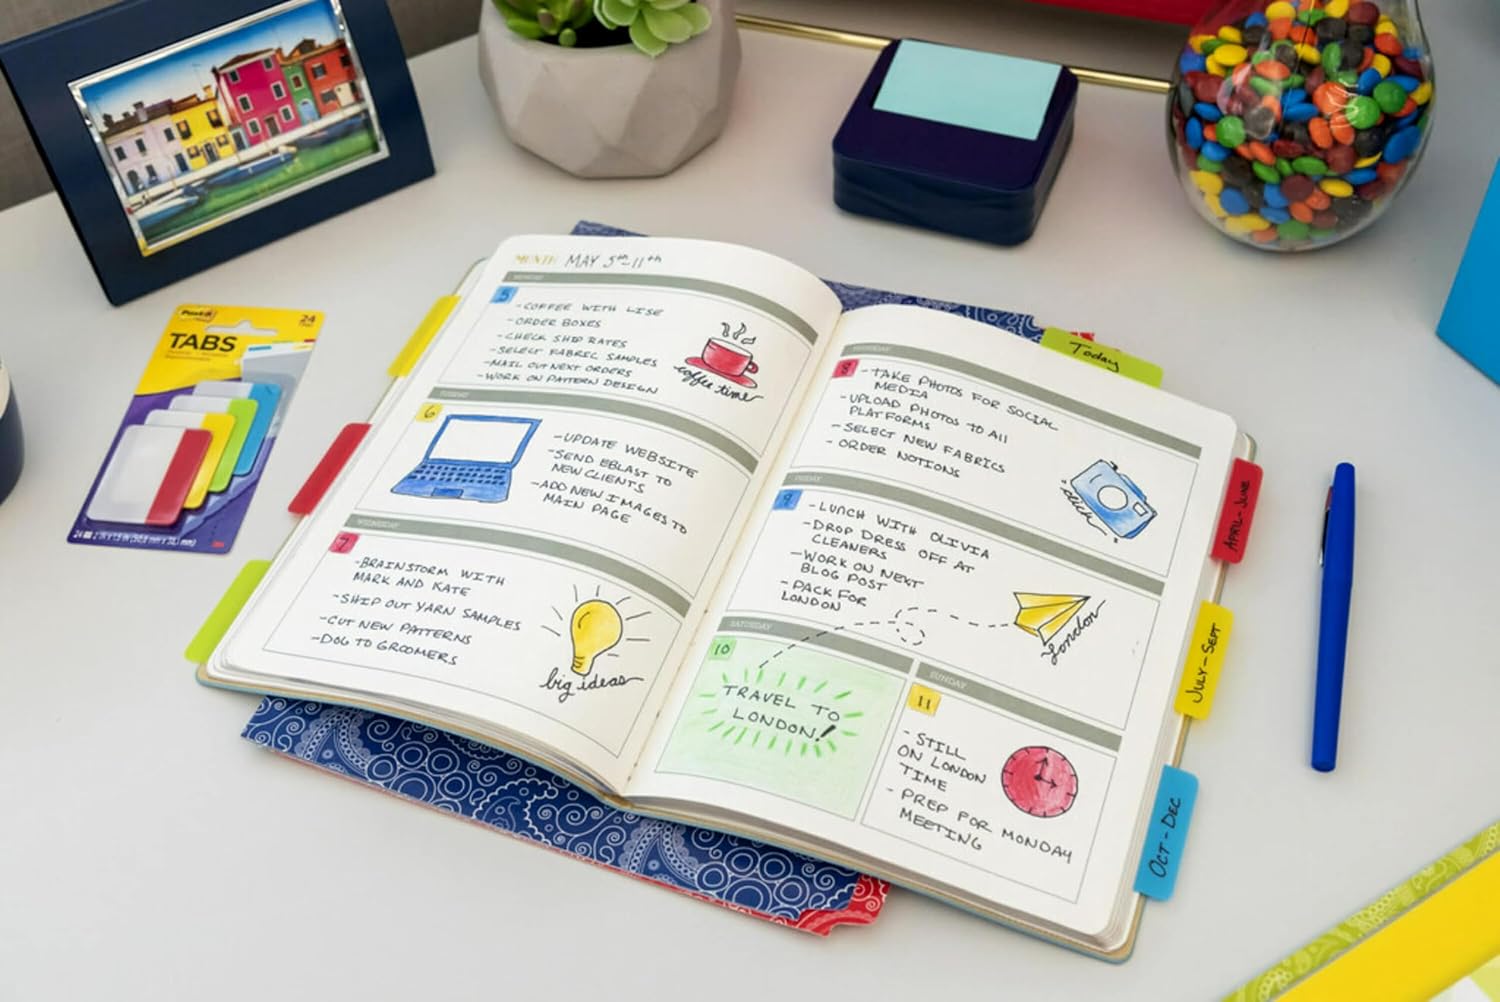 Post-it
24
TABS
MONTH: MAY 5th-11th
MONDAY
5
- COFFEE WITH LISE
- ORDER BOXES
- CHECK SHIP RATES
- SELECT FABRIC SAMPLES
- MAIL OUT NEXT ORDERS
- WORK ON PATTERN DESIGN
coffee time
TUESDAY
6
- UPDATE WEBSITE
- SEND EBLAST TO
NEW CLIENTS
- ADD NEW IMAGES TO
MAIN PAGE
WEDNESDAY
7
- BRAINSTORM WITH
MARK AND KATE
- SHIP OUT YARN SAMPLES
- CUT NEW PATTERNS
- DOG TO GROOMERS
big ideas
Today
THURSDAY
8
- TAKE PHOTOS FOR SOCIAL
MEDIA
- UPLOAD PHOTOS TO All
PLATFORMS
- SELECT NEW FABRICS
- ORDER NOTIONS
click
FRIDAY
9
- LUNCH WITH OLIVIA
- DROP DRESS OFF AT
CLEANERS
- WORK ON NEXT
BLOG POST
- PACK FOR
LONDON
London
SATURDAY
10
TRAVEL TO
LONDON!
SUNDAY
11
- STILL
ON LONDON
TIME
- PREP FOR MONDAY
MEETING
APRIL - JUNE
JULY - SEPT
OCT - DEC